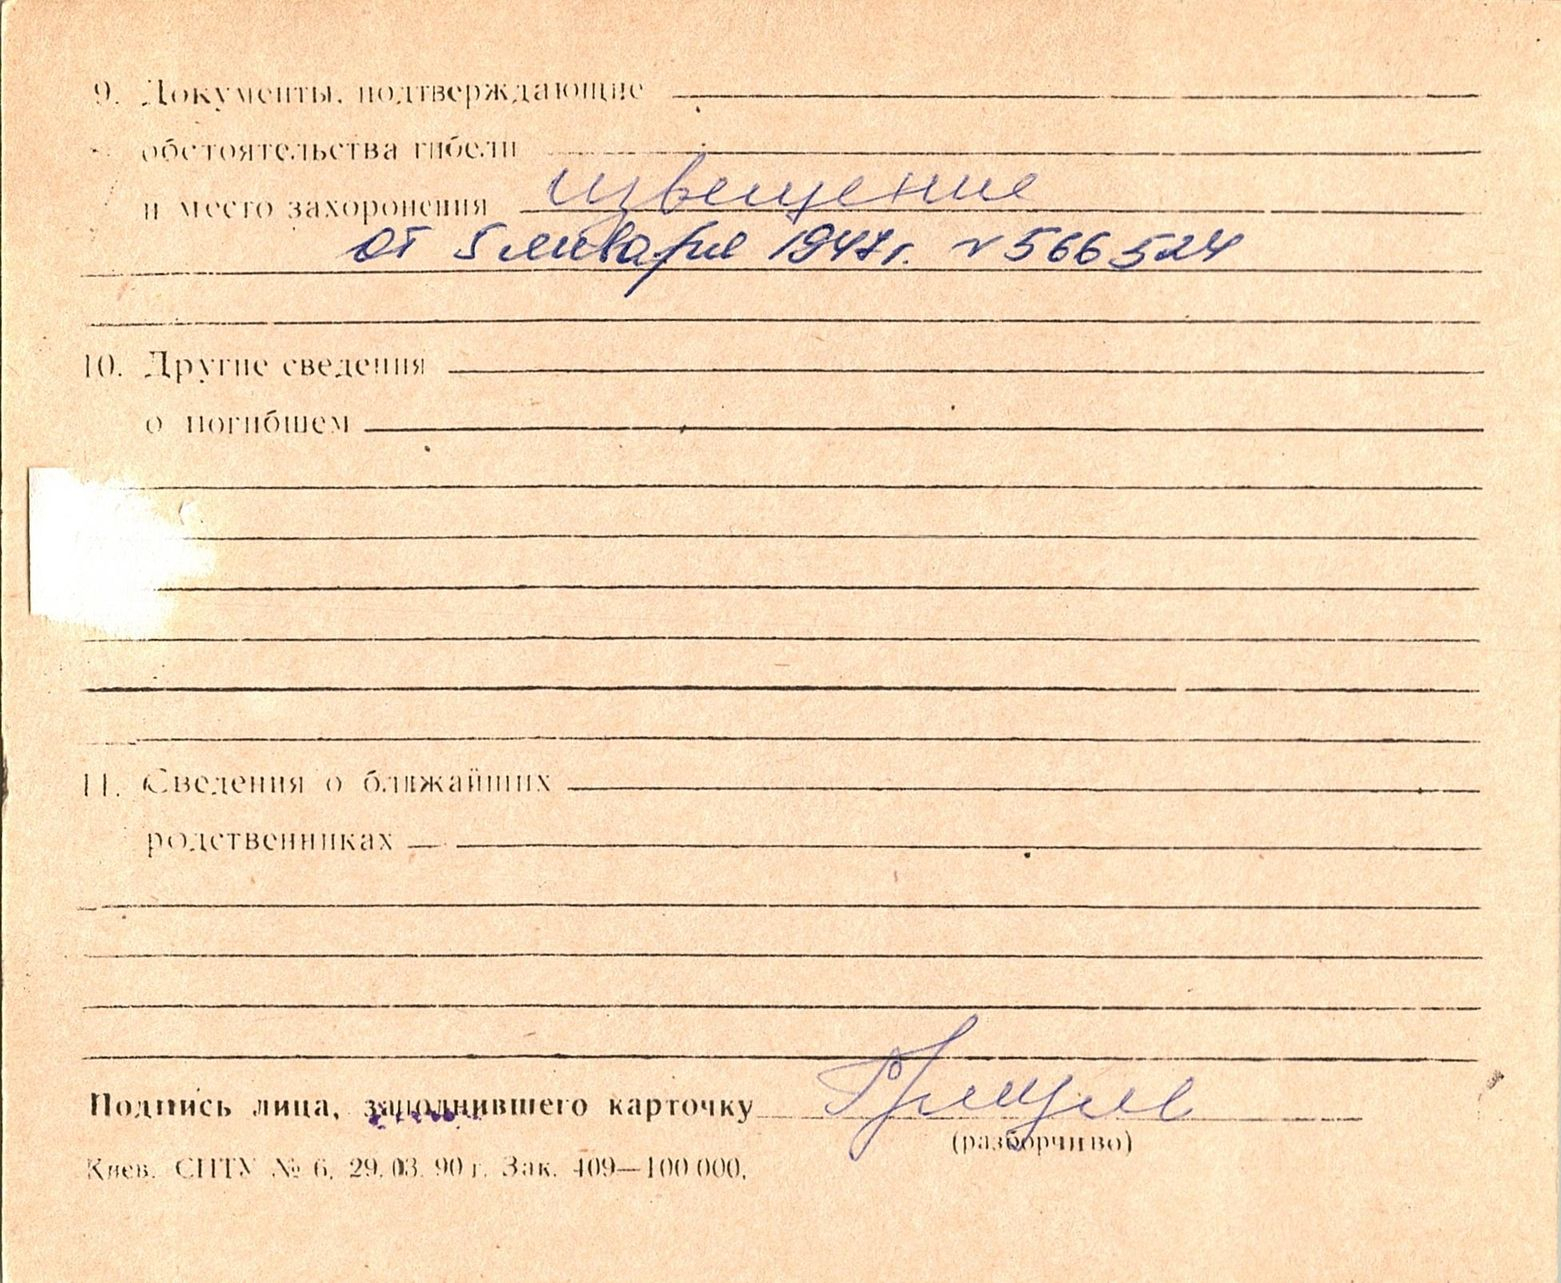 9. Документы, подтверждающие
обстоятельства гибели
и место захоронения извещение
от 5 января 1947 г. № 566524
10. Другие сведения
о погибшем
11. Сведения о ближайших
родственниках
Подпись лица, заполнившего карточку
(разборчиво)
Киев. СПТУ № 6. 29.03.90 г. Зак. 409—100 000.